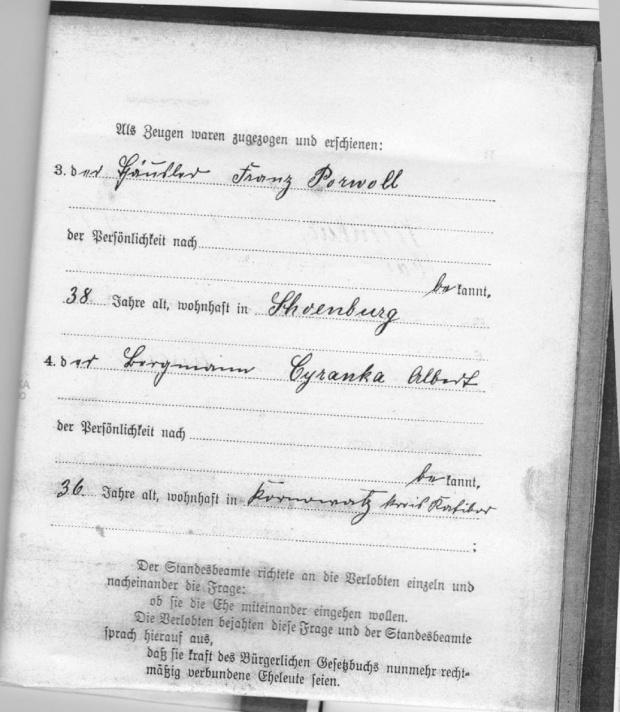 Als Zeugen waren zugezogen und erschienen:
3. der Häusler Franz Porwoll
der Persönlichkeit nach
bekannt,
38 Jahre alt, wohnhaft in Shoenburg
4. der Bergmann Cyranka Albert
der Persönlichkeit nach
bekannt,
36 Jahre alt, wohnhaft in Kornowatz Kreis Ratibor
;
Der Standesbeamte richtete an die Verlobten einzeln und
nacheinander die Frage:
ob sie die Ehe miteinander eingehen wollen.
Die Verlobten bejahten diese Frage und der Standesbeamte
sprach hierauf aus,
daß sie kraft des Bürgerlichen Gesetzbuchs nunmehr recht-
mäßig verbundene Eheleute seien.